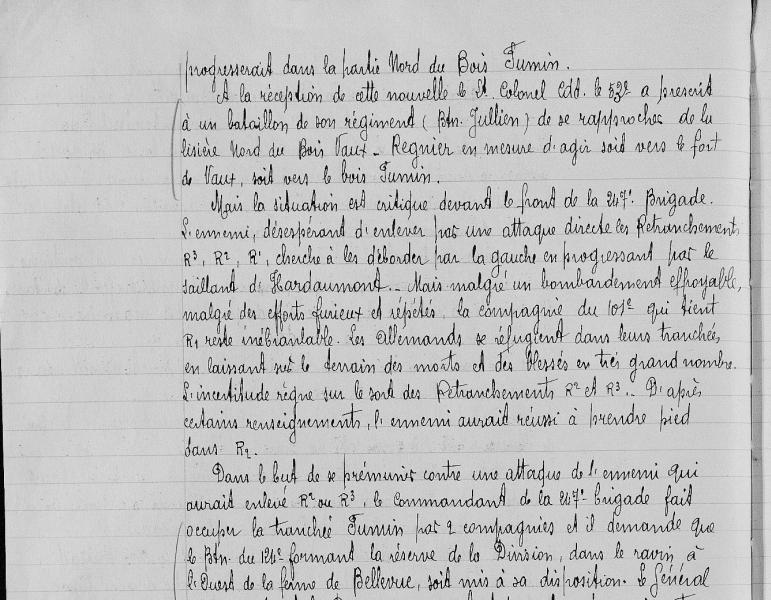 progresserait dans la partie Nord du Bois Fumin.
A la réception de cette nouvelle le Lt. Colonel Cdt. le 53e a prescrit
à un bataillon de son régiment (Btn. Jullien) de se rapprocher de la
lisière Nord du Bois Vaux - Regnier en mesure d'agir soit vers le fort
de Vaux, soit vers le bois Fumin.
Mais la situation est critique devant le front de la 247e Brigade.
L'ennemi, désespérant d'enlever par une attaque directe les Retranchements
R3, R2, R1, cherche à les déborder par la gauche en progressant par le
saillant d'Hardaumont. - Mais malgré un bombardement effroyable,
malgré des efforts furieux et répétés, la compagnie du 101e qui tient
R1 reste inébranlable. Les Allemands se réfugient dans leurs tranchées
en laissant sur le terrain des morts et des blessés en très grand nombre.
L'incertitude règne sur le sort des Retranchements R2 et R3.. D'après
certains renseignements, l'ennemi aurait réussi à prendre pied
dans R2.
Dans le but de se prémunir contre une attaque de l'ennemi qui
aurait enlevé R2 ou R3, le Commandant de la 247e brigade fait
occuper la tranchée Fumin par 2 compagnies et il demande que
le Btn. du 124e formant la réserve de la Division, dans le ravin à
l'Ouest de la ferme de Bellevue, soit mis à sa disposition. Le Général